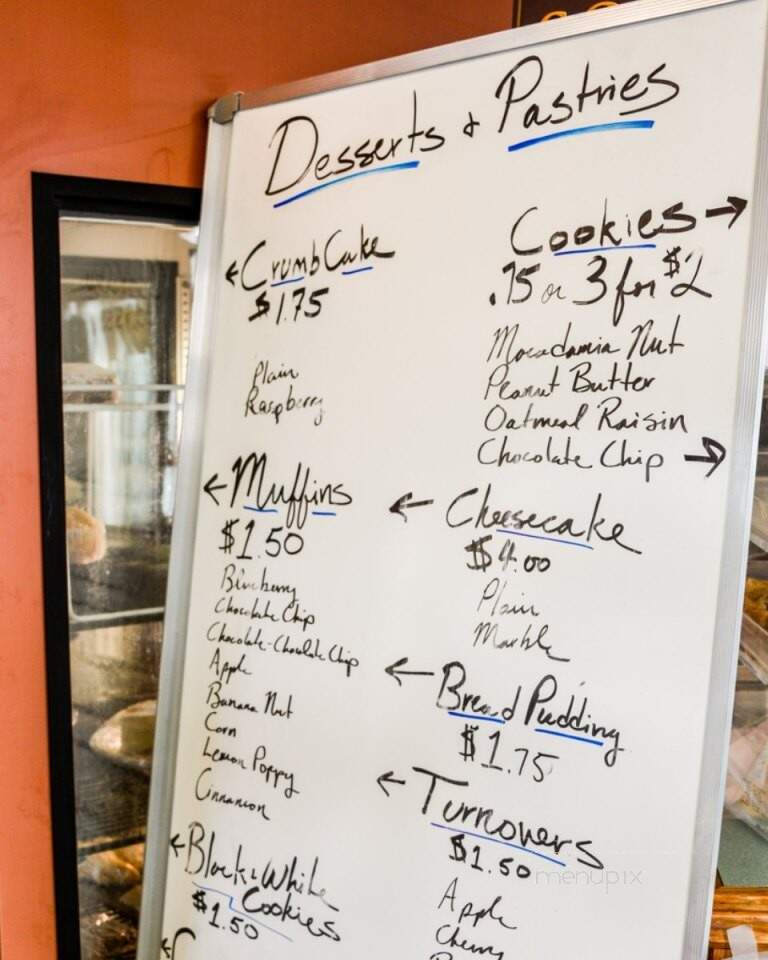 Desserts & Pastries
← Crumb Cake
$1.75
Plain
Raspberry
← Muffins
$1.50
Blueberry
Chocolate Chip
Chocolate-Chocolate Chip
Apple
Banana Nut
Corn
Lemon Poppy
Cinnamon
← Black & White
Cookies
$1.50
Cookies →
.75 or 3 for $2
Macadamia Nut
Peanut Butter
Oatmeal Raisin
Chocolate Chip →
← Cheesecake
$4.00
Plain
Marble
← Bread Pudding
$1.75
← Turnovers
$1.50
Apple
Cherry
menupix